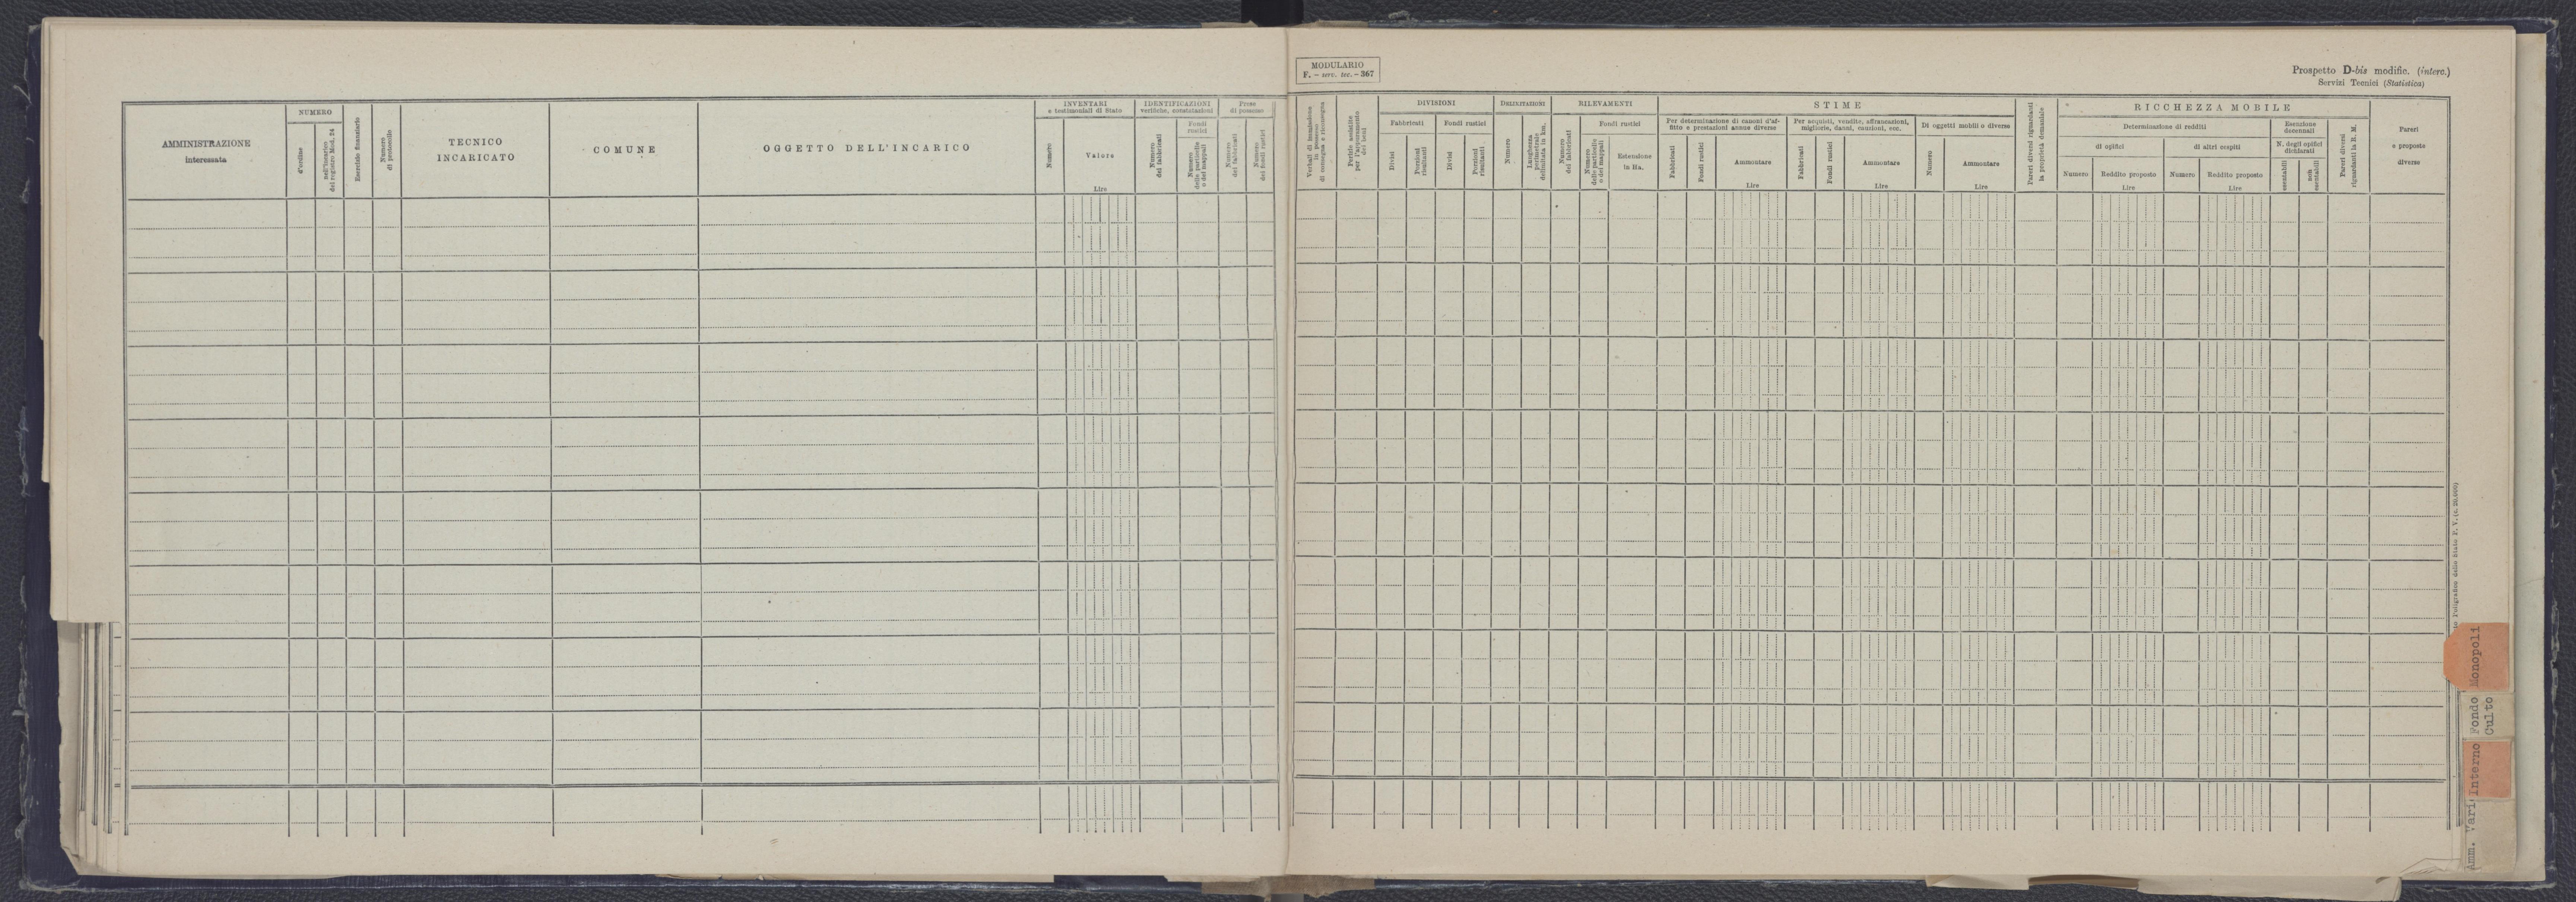 MODULARIO
F. - serv. tec. - 367
Prospetto D-bis modific. (interc.)
Servizi Tecnici (Statistica)
AMMINISTRAZIONE
interessata
NUMERO
d'ordine
nell'incarico
del registro Mod. 24
Esercizio finanziario
Numero
di protocollo
TECNICO
INCARICATO
COMUNE
OGGETTO DELL'INCARICO
INVENTARI
e testimoniali di Stato
Numero
Valore
Lire
IDENTIFICAZIONI
verifiche, constatazioni
Numero
dei fabbricati
Fondi
rustici
Numero
delle particelle
o dei mappali
Prese
di possesso
Numero
dei fabbricati
Numero
dei fondi rustici
Verbali di immissione
in possesso
di consegna e riconsegna
Perizie assistite
per l'appuramento
dei beni
DIVISIONI
Fabbricati
Divisi
Porzioni
risultanti
Fondi rustici
Divisi
Porzioni
risultanti
DELIMITAZIONI
Numero
Lunghezza
perimetrale
delimitata in km.
RILEVAMENTI
Numero
dei fabbricati
Fondi rustici
Numero
delle particelle
o dei mappali
Estensione
in Ha.
STIME
Per determinazione di canoni d'af-
fitto e prestazioni annue diverse
Fabbricati
Fondi rustici
Ammontare
Lire
Per acquisti, vendite, affrancazioni,
migliorie, danni, cauzioni, ecc.
Fabbricati
Fondi rustici
Ammontare
Lire
Di oggetti mobili e diverse
Numero
Ammontare
Lire
Pareri diversi riguardanti
la proprietà demaniale
RICCHEZZA MOBILE
Determinazione di redditi
di opifici
Numero
Reddito proposto
Lire
di altri cespiti
Numero
Reddito proposto
Lire
Esenzione
decennali
N. degli opifici
dichiarati
esentabili
non
esentabili
Pareri diversi
riguardanti la R. M.
Pareri
e proposte
diverse
Poligrafico dello Stato P. V. (c. 20.000)
Monopoli
Fondo
Culto
Interno
Amm. Vari